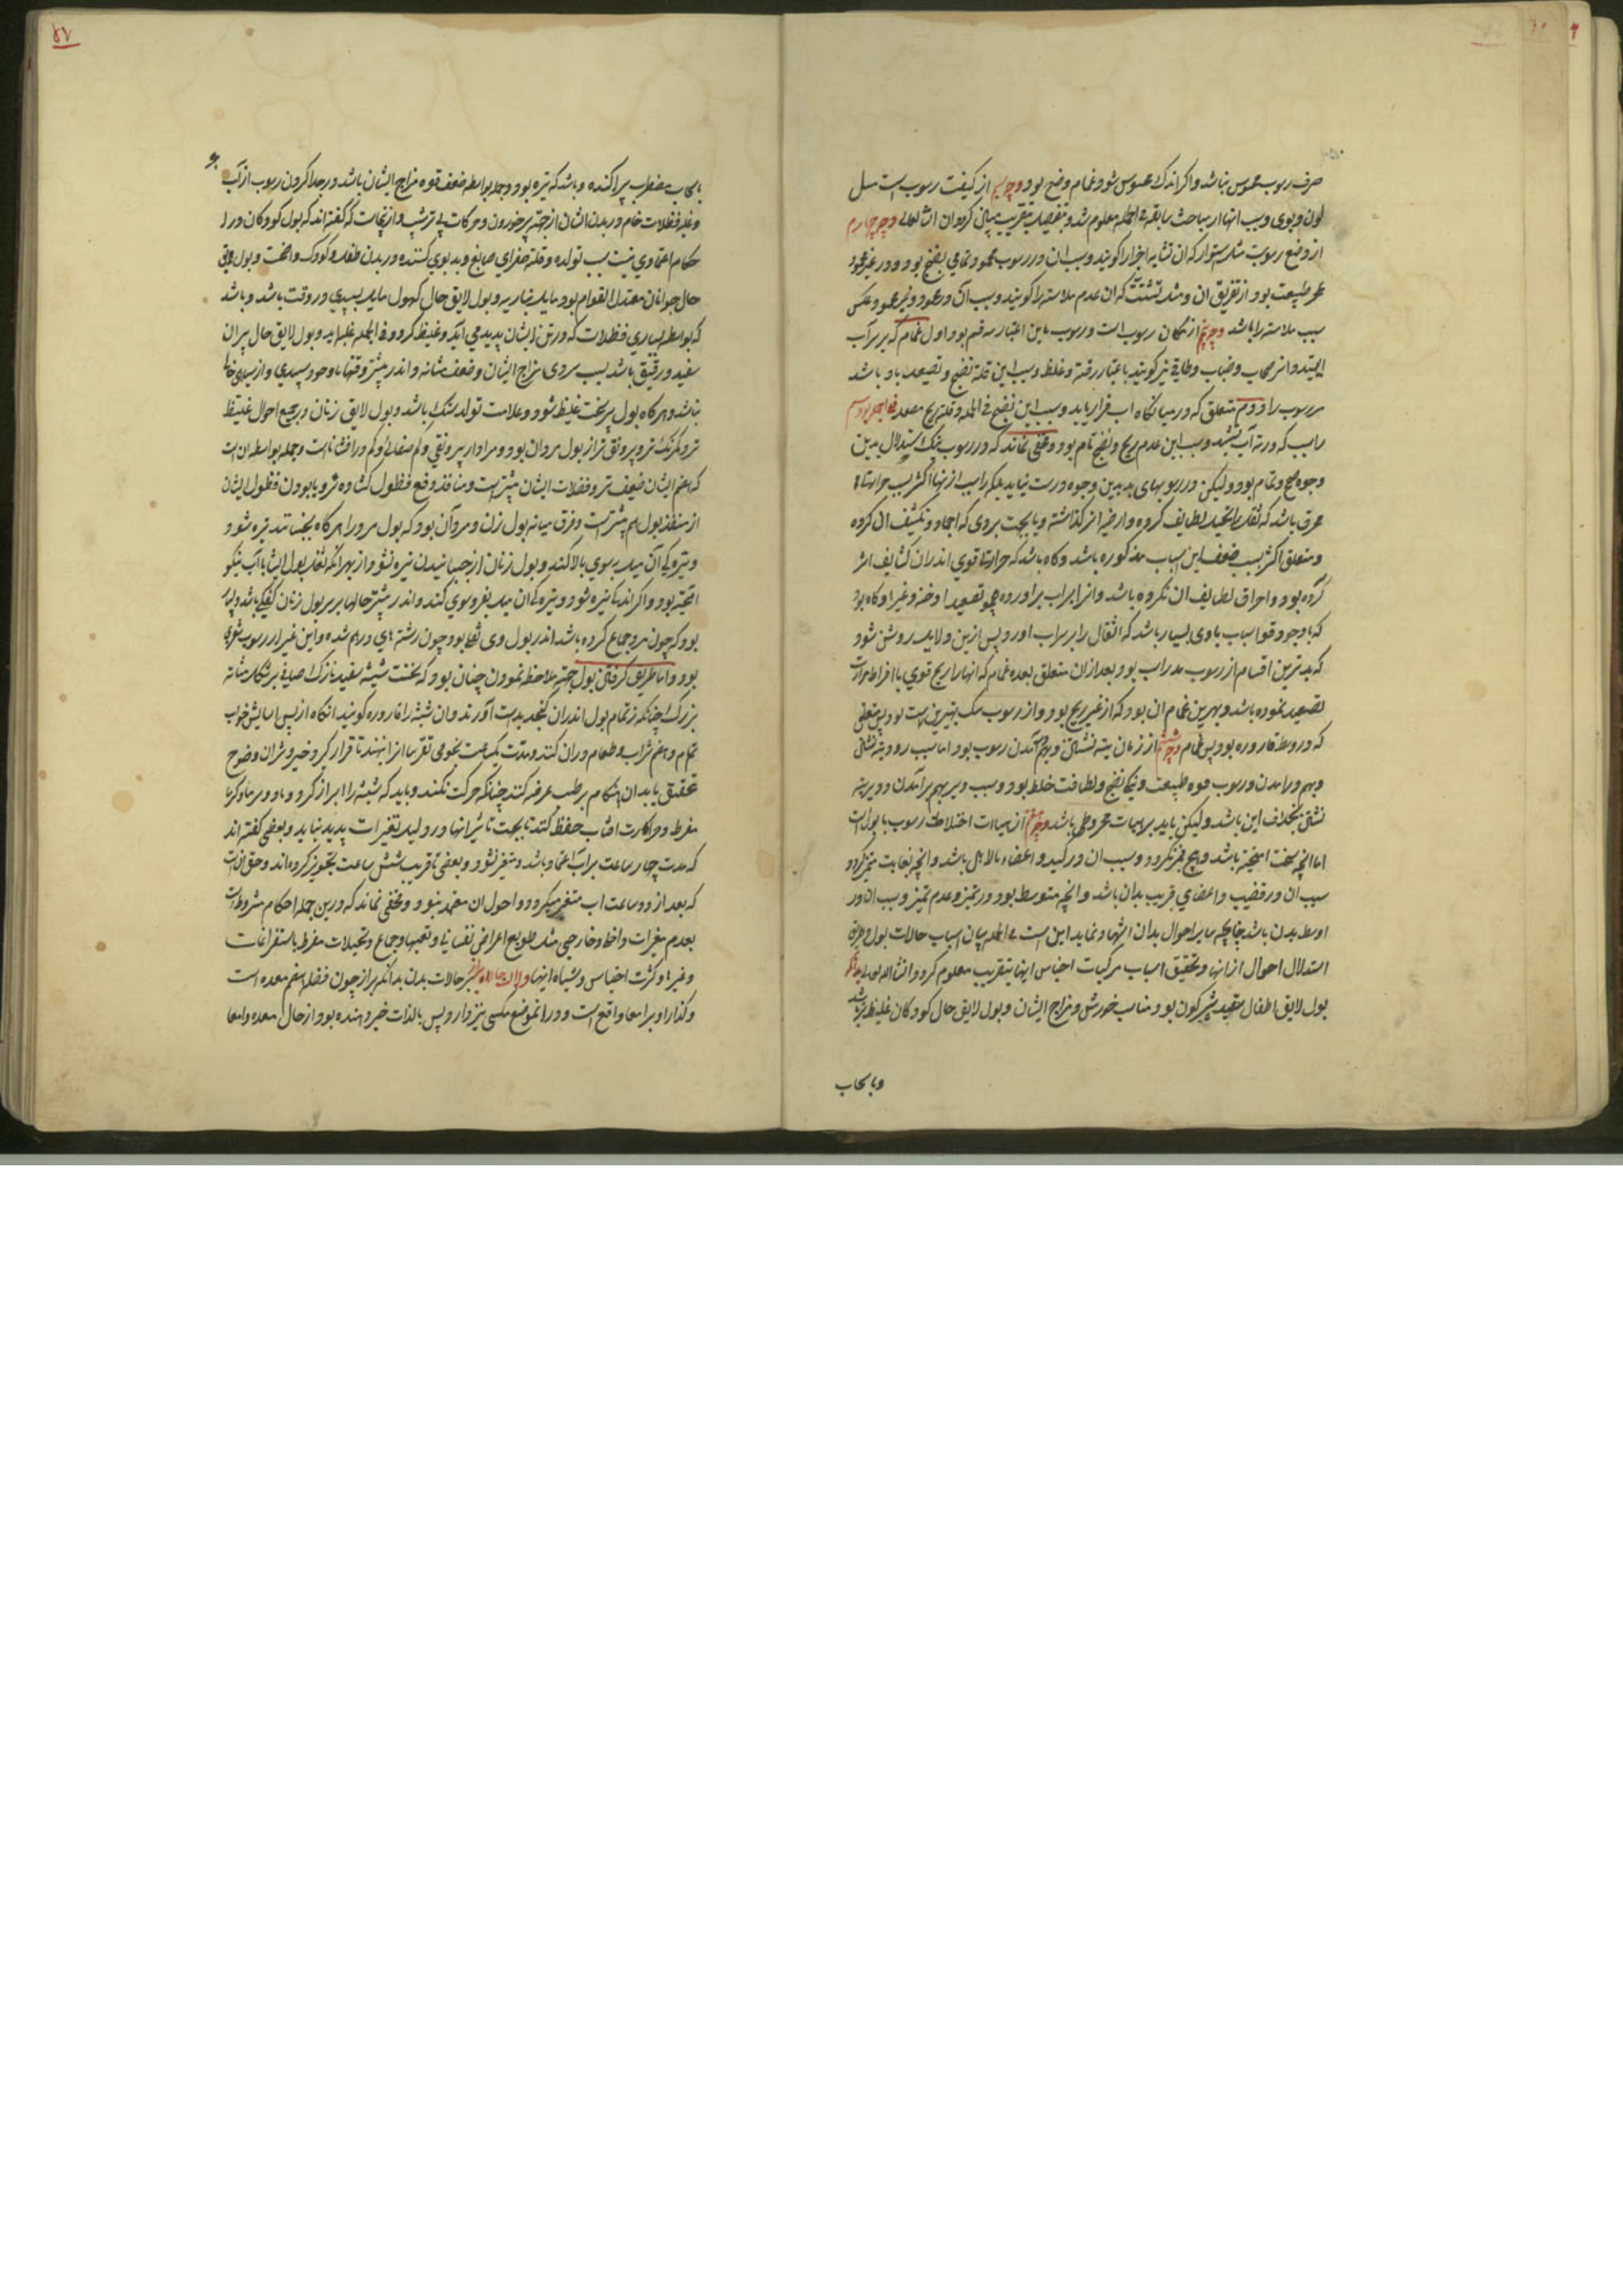 صرف رسوب محسوس نباشد و اگر اندک محسوس شود غمام وضح بود و وجه سیم از کیفیت رسوب است مثل
لون و بوی و سبب آنها از مباحث سابقه فی الجمله معلوم شد و بتفصیل بتقریب بیان کرده آن انشا الله تعالی وجه چهارم
از وضع رسوبت مثل استوار که آن تشابه اجزا را گویند و سبب آن در رسوب محمود تمامی نضج بود و در غیر محمود
طبیعت بود از تفریق آن و مثل تشتت که آن عدم ملاسته را گویند و سبب آن در محمود و غیر محمود عکس
سبب ملاسته را باشد وجه پنجم از مکان رسوب است و رسوب باین اعتبار سه قسم بود اول غمام که بر سر آب
ایستد و انرا سحاب و ضباب و طافی نیز گویند باعتبار رقة و غلظ و سبب این قلة نضج و تصعید باد باشد
مر رسوب را دوم متعلق که در میانگاه آب قرار یابد و سبب این نضج فی الجمله و قلة ریح مصعد فی الجمله بود سیم
راسب که در ته آب نشیند و سبب این عدم ریح و نضج تام بود و مخفی نماند که در رسوب نیک استدلال بدین
وجوه صحیح و تمام بود و لیکن در رسوبهای بد بدین وجوه درست نیاید بلکه راسب از نها اکثر بسبب حرارتها
محرق باشد که ثقل را تحلیل لطایف کرده و ارضیه انرا گذاشته و یا بجهت بردی که اجماد و تکثیف ان کرده
و متعلق اکثر بسبب ضعف این اسباب مذکوره باشد و گاه باشد که حرارتها قوی اندران کثایف اثر
کرده بود و احراق لطایف ان نکرده باشد و انرا بر آب بر آورده همچو تصعید ادخنه و غیر او گاه بود
که با وجود قوا سبب بادی بسیار باشد که اثقال را بر سر آب آورد پس ازین دلایل روشن شود
که بدترین اقسام از رسوب بد راسب بود بعد ازان متعلق بعده غمام که انها را ریح قوی با افراط حرارت
تصعید نموده باشد و بهترین غمام ان بود که از غیر ریح بود و از رسوب نیک بهترین راسب بود پس متعلق
که در وسط قاروره بود پس غمام وجه ششم از زمان بته نشستن و بهم آمدن رسوب بود اما سبب زود بته نشستن
و بهم در آمدن رسوب قوه طبیعت و نیکی نضج و لطافت خلط بود و سبب دیر بهم بر آمدن و دیر بته
نشستن بخلاف این باشد و لیکن باید بر هیئات مخروطی باشد وجه هفتم از هیات اختلاط رسوب با بول است
اما انچه سخت امیخته باشد و هیچ تمیز نکردد و سبب ان در کبد و اعضاء بالا اهل باشد و انچه بغایت متمیز گردد
سبب ان در قضیب و اعضای قریب بدان باشد و انچه متوسط بود در تمیز و عدم تمیز و سبب ان در
اوسط بدن باشد چنانچه سایر احوال بدان اشهاد نماید این است فی الجمله بیان اسباب حالات بول و طریق
استدلال احوال از انها و تحقیق اسباب مرکبات اجناس اینها بتقریب معلوم گردد انشا الله تعالی بدانکه
بول لایق اطفال سفید شیر گون بود مناسب خورش و مزاج ایشان و بول لایق حال کودکان غلیظ تر باشد
و با سحاب
با سحاب مضطرب پراکنده و باشد که تیره بود و جمله بواسطه ضعف قوه مزاج ایشان باشد در جدا کردن رسوب از آب
و غلبه فضلات خام در بدن ایشان از جهت پر خوردن و حرکات بی ترتیب و از نجاست که گفته اند که بول کودکان در
حکام اعتمادی نیست بسبب تولده و قلة صفرای صابغ و بد بوی کننده در بدن طفل و کودک و اخت و بول لایق
حال جوانان معتدل القوام بود مایل بناریه و بول لایق حال کهول مایل بسپیدی و رقت باشد و باشد
که بواسطه بسیاری فضلات که در تن ایشان پدید می آید و غلیظ گردد و فی الجمله غلبه آید و بول لایق حال پیران
سفید و رقیق باشد بسبب سردی مزاج ایشان و ضعف مثانه و اندر بیشتر وقتها با وجود سپیدی و از سیاهی خالی
نباشد و هر گاه بول پیر سخت غلیظ شود و علامت تولد سنگ باشد و بول لایق زنان در جمیع احوال غلیظ
تر و کم رنگ تر و پر رونق تر از بول مردان بود و مراد از بی رونقی و کم صفائی و کم درافشانست و جمله بواسطه آنست
که هضم ایشان ضعیف تر و فضلات ایشان بیشتر است و منافذ دفع فضول گشاده تر و یا بودن فضول ایشان
از منفذ بول هم بیشتر است و فرق میانه بول زن و مرد آن بود که بول مرد را هر گاه بجنبانند تیره شود
و تیرگی آن میل بسوی بالا کند و بول زنان از جنبانیدن تیره نشود از بهر انکه ثقل بول ایشان با آب نیکو
امیخته بود و اگر اندک تیره شود و تیرگی ان میل بفرو سوی کند و اندر بیشتر حالها بر سر بول زنان کفکی باشد
بود که چون مرد جماع کرده باشد اندر بول وی ثقلی بود چون رشته های در هم شده و این غیر از رسوب شعری
بود و اما طریق گرفتن بول جهت ملاحظه نمودن چنان بود که نخست شیشه سفید نازک صافی بر شکل مثانه
بزرگ چنانکه تمام بول اندران گنجد بدست آورند و ان شیشه را قاروره گویند انگاه از پس اسایش خواب
تمام و هضم شراب و طعام دران کنند و مدت یک ساعت نجومی تقریبا انرا بنهند تا قرار گیرد خیر و شران وضوح
تحقیق یابد ان هنگام بر طبیب عرضه کنند چنانکه حرکت نکند و باید که شیشه را ابراز گرد و باد و سرما و گرما
مفرط و حرارت افتاب حفظ کنند تا بجهت تاثیر انها در و لید تغیرات پدید نیاید و بعضی گفته اند
که مدت چهار ساعت بر آب اعتماد باشد و متغیر نشود و بعضی تا قریب شش ساعت تجویز کرده اند و حق آنست
که بعد از دو ساعت اب متغیر میگردد و احوال ان معتمد نبود و مخفی نماند که درین جمله احکام مشروط است
بعدم مغیرات داخلی و خارجی مثل طوایع اعراض نفسانی و تعبها و جماع و تخیلات مفرط باستفراغات
و غیرها و کثرت احتباس و اشباه اینها و حالات بدن بدانکه براز چون فضله هضم معده است
و گذار او بر امعا واقع است و درا نموضع مکسی نیز دارد پس بالذات خبر دهنده بود از حال معده و امعا